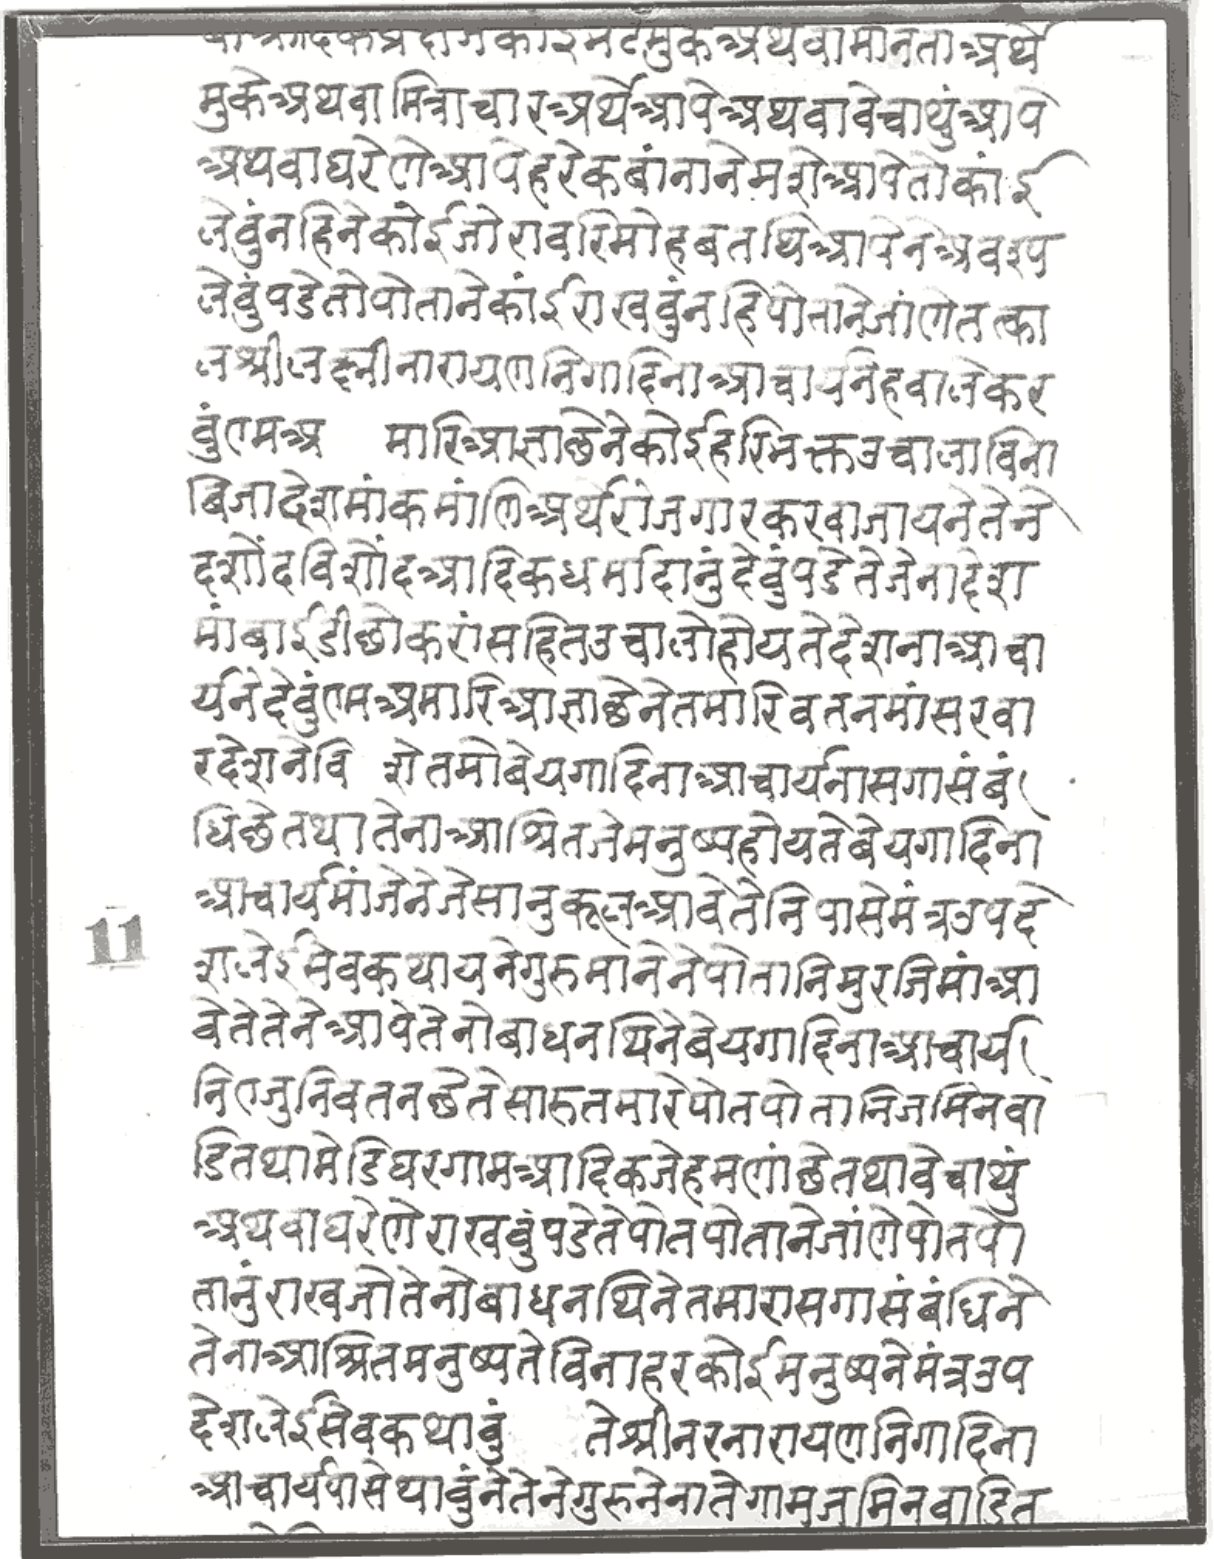 मुके अथवा मित्राचार अर्थे आपे अथवा वेचाथुं आपे
अथवा घरेणे आपे हरेक बांनाने मशे आपे तो कांई
लेवुं नहि ने कोई जोरावरि मोहबतथि आपे ने अवश्य
लेवुं पडे तो पोताने कांई राखवुं नहि पोताने जांणे तत्का
ल श्रीलक्ष्मीनारायणनि गादिना आचार्यने हवाले कर
वुं एम अ मारि आज्ञा छे ने कोई हरिभक्त उचाला विना
बिजा देशमां कमांणि अर्थे रोजगार करवा जाय ने तेने
दशोंद विशोंद आदिक धर्मादानुं देवुं पडे ते जेना देश
मां बाईडी छोकरां सहित उचालो होय ते देशना आचा
र्यने देवुं एम अमारि आज्ञा छे ने तमारि वतनमां सरवा
र देशने वि शे तमो बेय गादिना आचार्यना सगासंबं
धि छे तथा तेना आश्रित जे मनुष्य होय ते बेय गादिना
आचार्यमां जेने जे सानुकूल आवे तेनि पासे मंत्र उपदे
श लेई सेवक थाय ने गुरु माने ने पोतानि मुरजिमां आ
वे ते तेने आपे तेनो बाध नथि ने बेय गादिना आचार्य
नि एजुनि वतन छे ते सारु तमारे पोतपोतानि जमिन वा
डि तथा मेडि घर गाम आदिक जे हमणां छे तथा वेचाथुं
अथवा घरेणे राखवुं पडे ते पोतपोताने जांणे पोतपो
तानुं राखजो तेनो बाध नथि ने तमारा सगासंबंधि ने
तेना आश्रित मनुष्य ते विना हरकोई मनुष्यने मंत्र उप
देश लेई सेवक थावुं ते श्रीनरनारायणनि गादिना
आचार्य पासे थावुं ने तेने गुरुने नाते गाम जमिन वाडि त